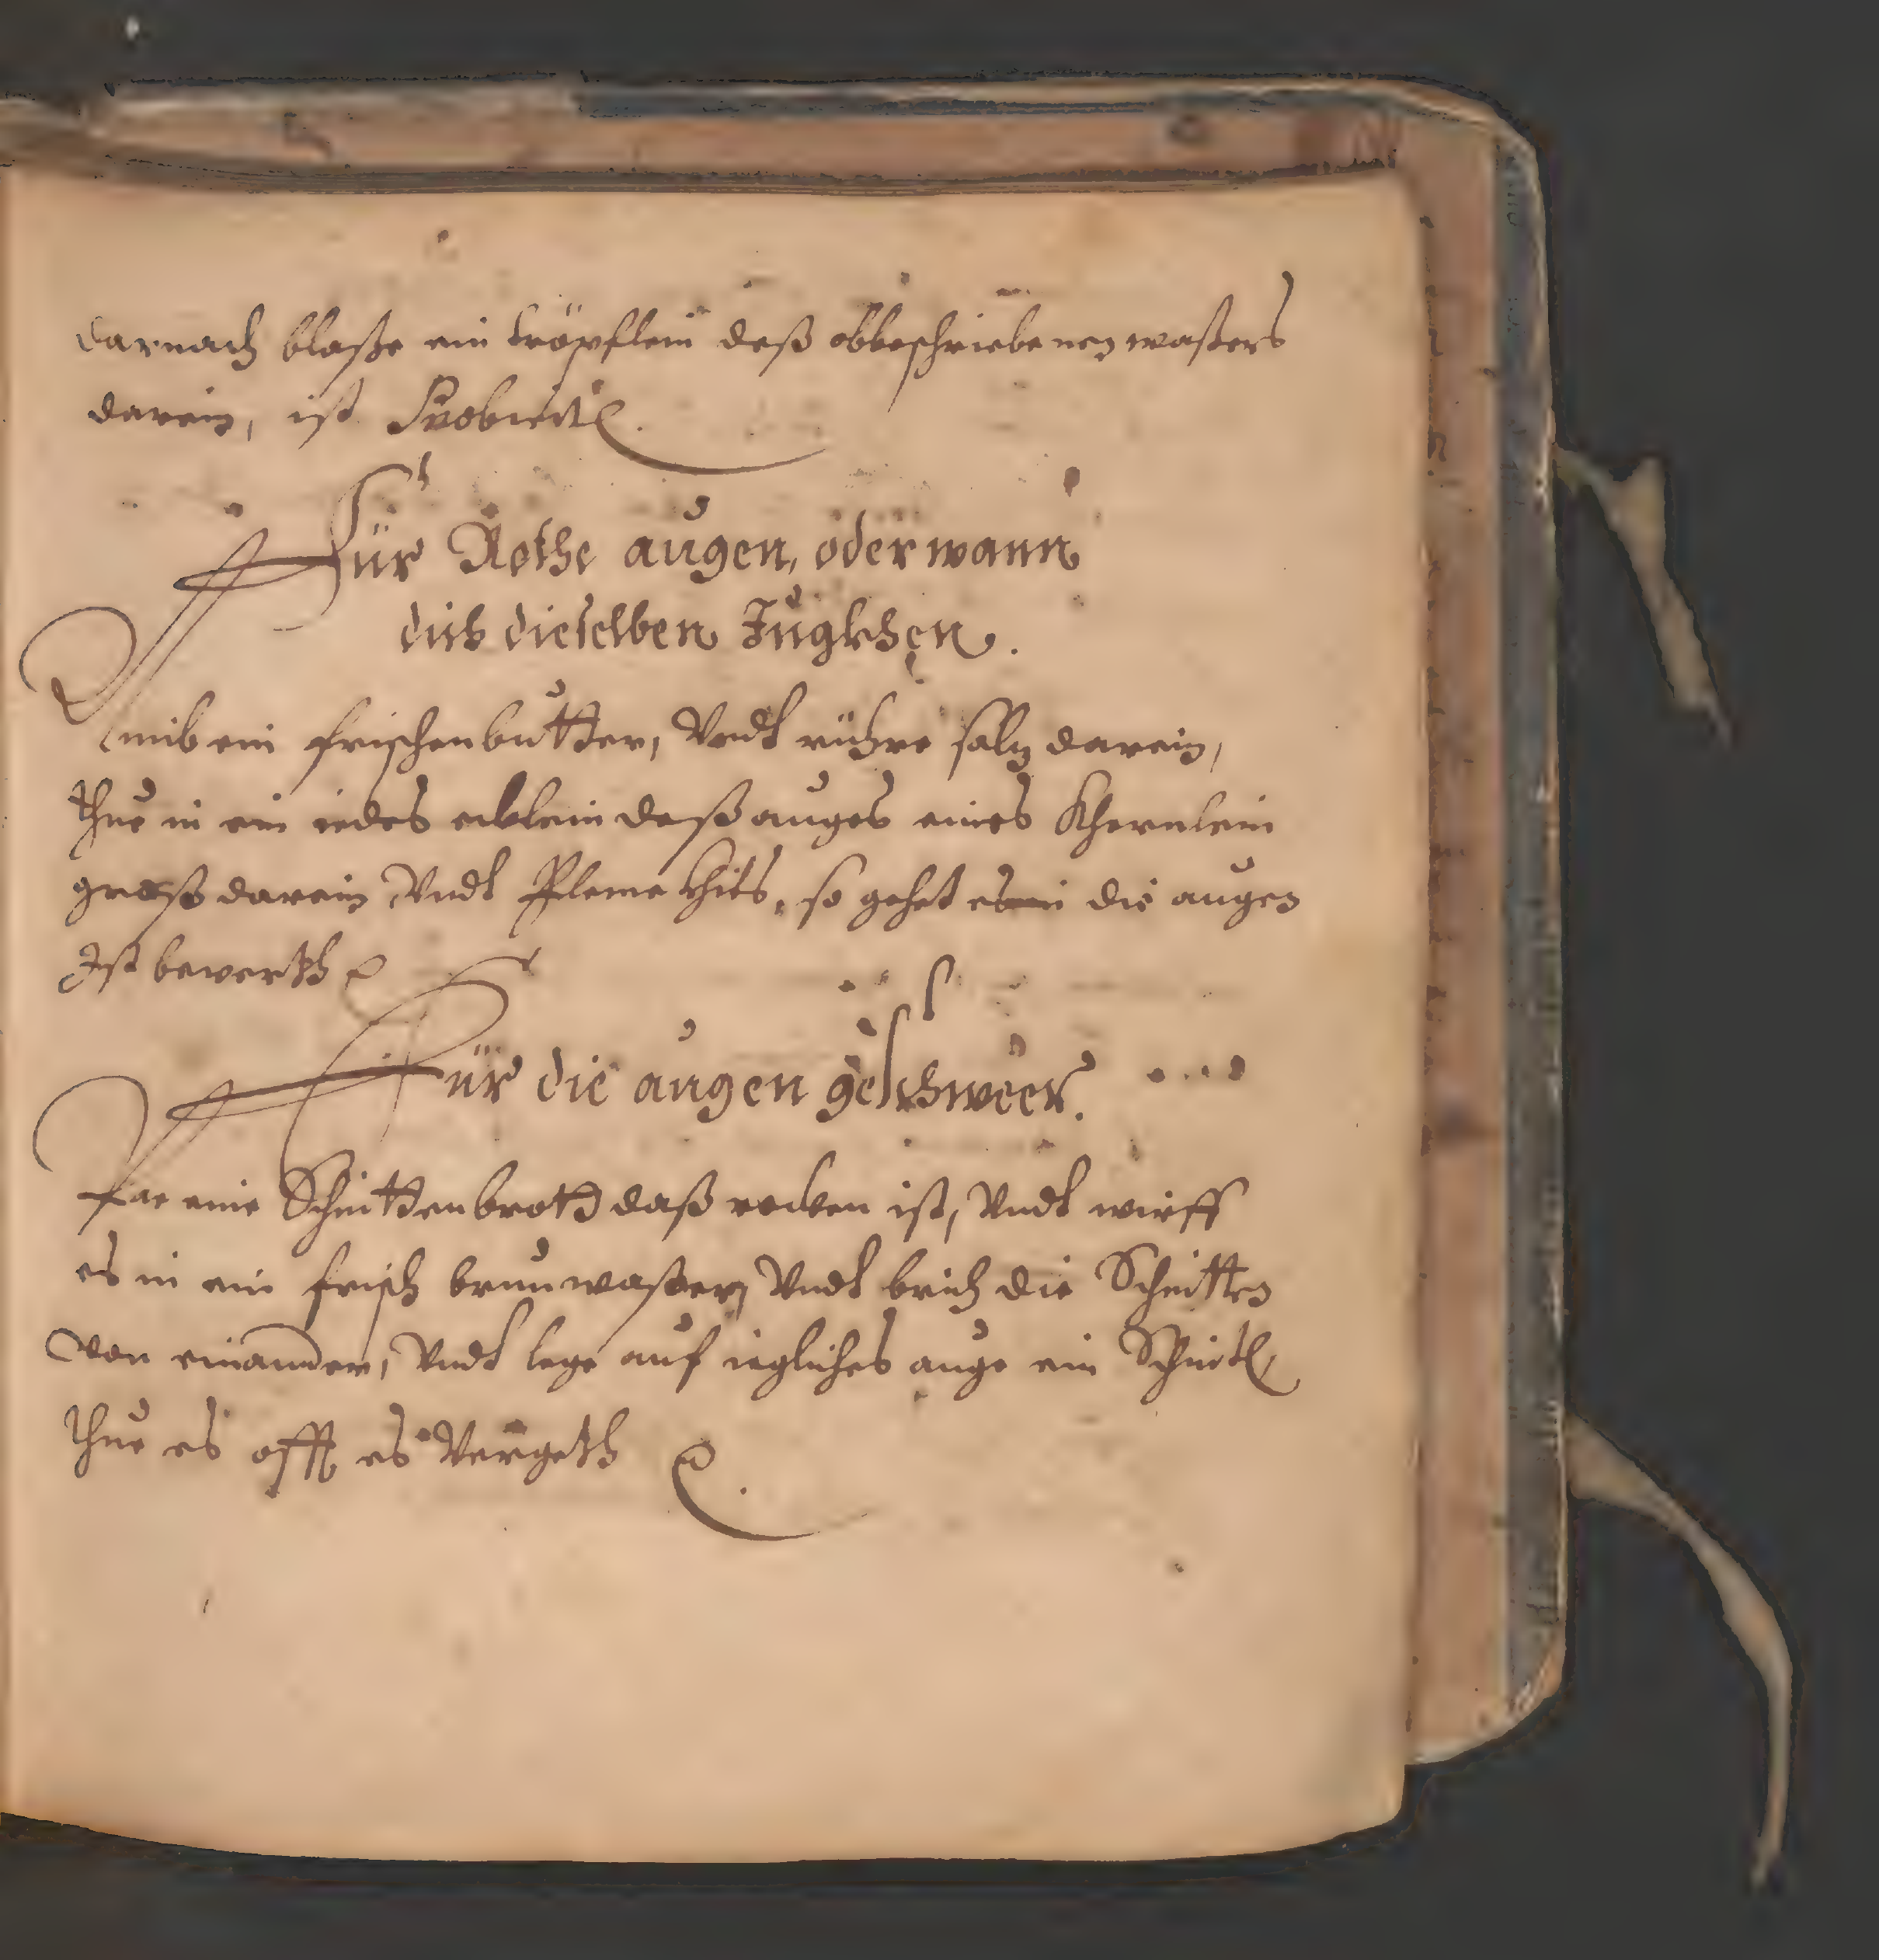 darnach blaße ein tröpflein deß obbeschriebenen waßers
darein, ist Probiert
Für Rothe augen, oder wann
dich dieselben Jugkhen.
Nimb ein frischen butter, Vndt rühre saltz darein,
thue in ein iedes ecklein deß auges eines Khernlein
groß darein Vndt khits, so gehet es in die augen
Ist bewerth
Für die augen geschweer.
eine Schnitten broth daß rocken ist, Vndt wirff
es in ein frisch brunwaßer, Vndt brich die Schnitten
von einander, Vndt lege auf iegliches auge ein Schnitl,
thue es offt es Vergeth